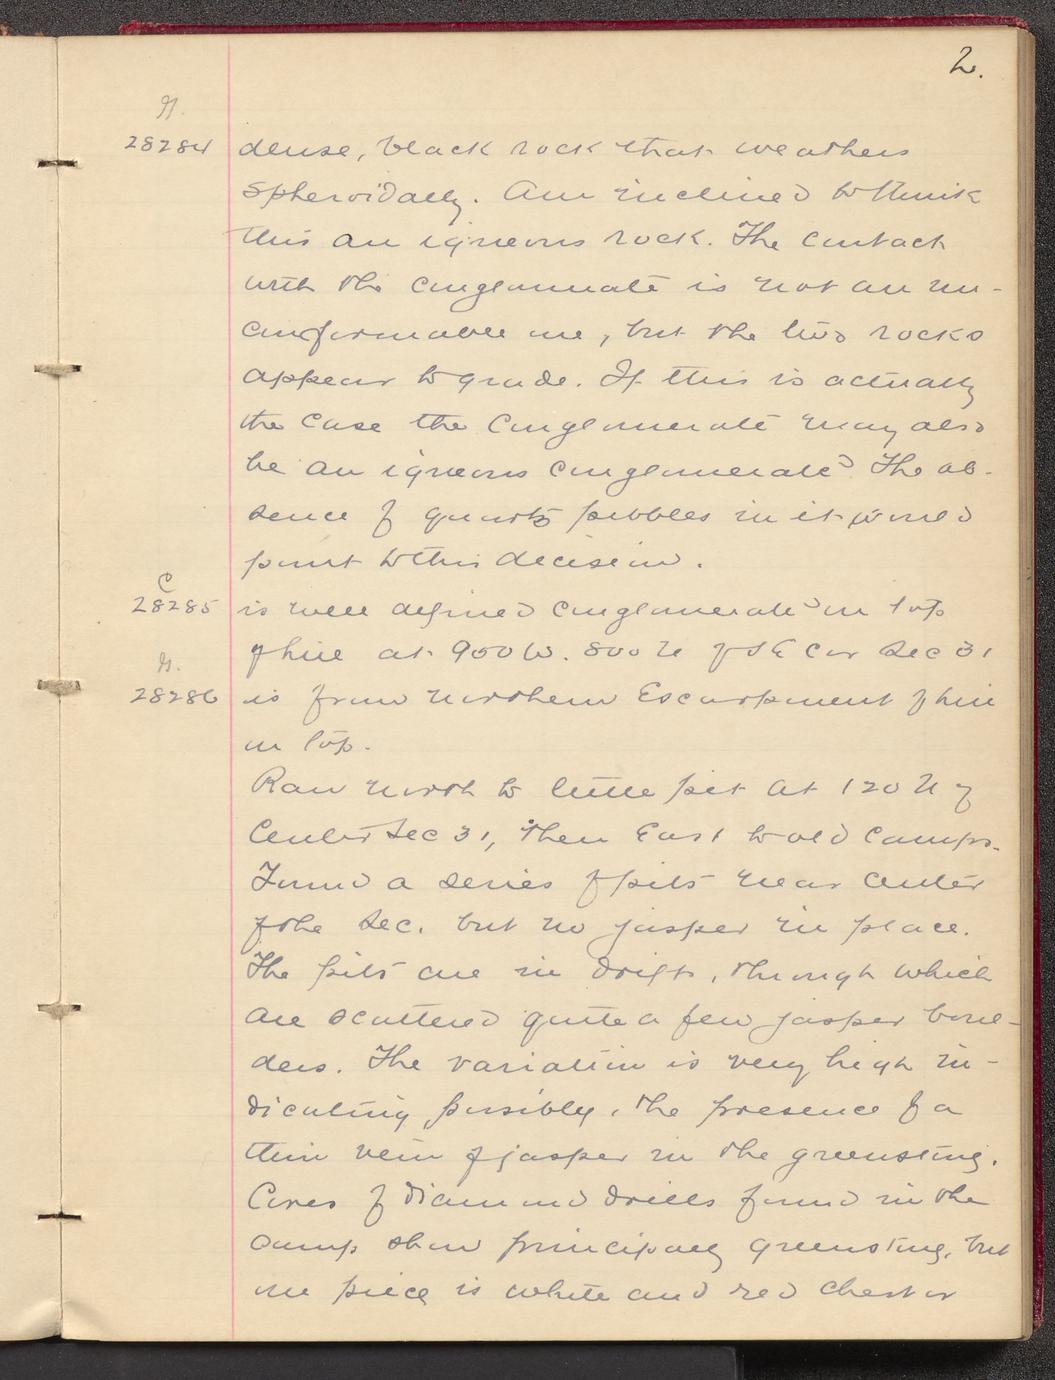 2.
G.
28284 dense, black rock that weathers
spheroidally. Am inclined to think
this an igneous rock. The contact
with the conglomerate is not an un-
conformable one, but the two rocks
appear to grade. If this is actually
the case the conglomerate may also
be an igneous conglomerate. The ab-
sence of quartz pebbles in it would
point to this decision.
C
28285 is well defined conglomerate on top
of hill at 900 W. 800 N of SE Cor Sec 31
G.
28286 is from northern Escarpment of hill
on top.
Ran north to little pit at 120 N of
Center Sec 31, then East to old camps.
Found a series of pits near center
of the Sec. but no jasper in place.
The pits are in drift, through which
are scattered quite a few jasper boul-
ders. The variation is very high in-
dicating, possibly, the presence of a
thin vein of jasper in the greenstone.
Cores of diamond drills found in the
camp show principally greenstone, but
one piece is white and red chert or